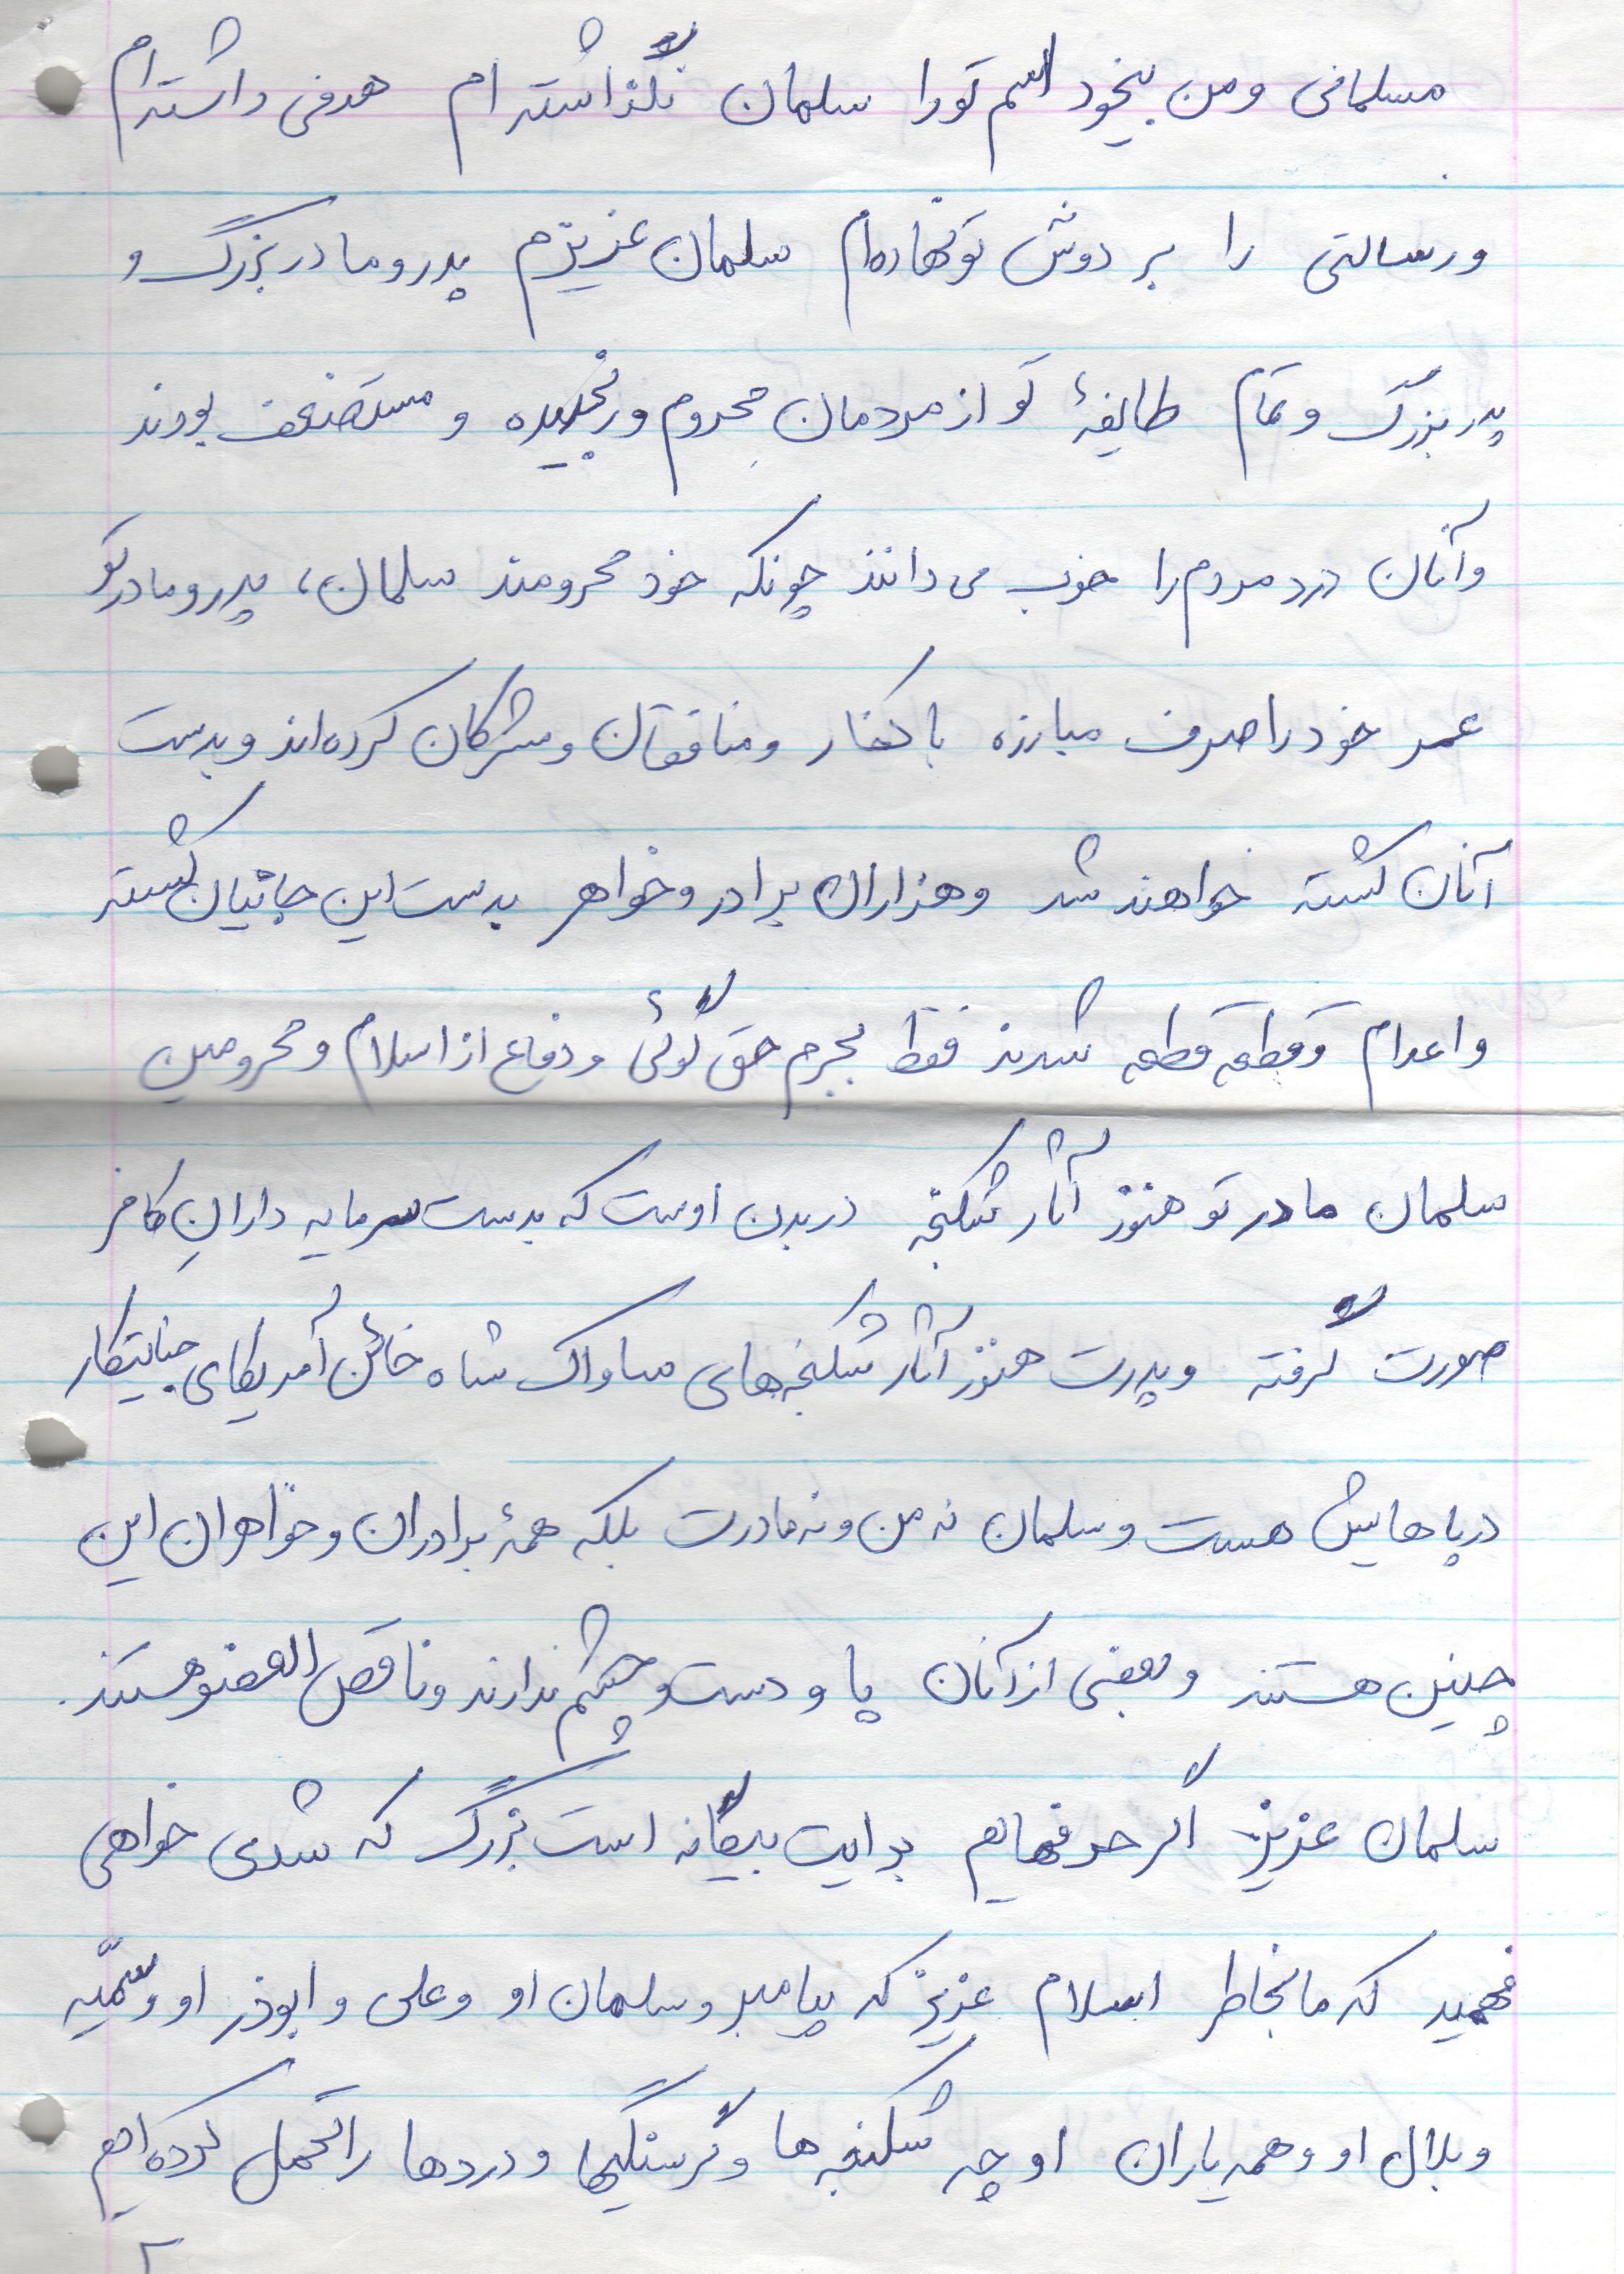 مسلمانی ومن بیخود اسم تورا سلمان نگذاشته ام هدفی داشته ام
ورسالتی را بر دوش تو نهاده ام سلمان عزیزم پدر و مادر بزرگ و
پدر بزرگ و تمام طایفهٔ تو از مردمان محروم و رنجیده و مستضعف بودند
وآنان درد مردم را خوب می دانند چونکه خود محرومند سلمان، پدر و مادر تو
عمر خود را صرف مبارزه با کفار و منافقان و مشرکان کرده اند و بدست
آنان کشته خواهند شد و هزاران برادر و خواهر بدست این جانیان کشته
و اعدام و قطعه قطعه شدند فقط بجرم حق گوئی و دفاع از اسلام و محرومین
سلمان مادر تو هنوز آثار شکنجه در بدن اوست که بدست سرمایه دارانِ کافر
صورت گرفته و پدرت هنوز آثار شکنجه های ساواک شاه خائن آمریکای جنایتکار
در پاهایش هست و سلمان نه من و نه مادرت بلکه همهٔ برادران و خواهران این
چنین هستند و بعضی از آنان پا و دست و چشم ندارند و ناقص العضو هستند.
سلمان عزیز اگر حرفهایم برایت بیگانه است بزرگ که شدی خواهی
فهمید که ما بخاطر اسلام عزیز که پیامبر و سلمان او و علی و ابوذر او و سمّیه
و بلال او و همه یاران او چه شکنجه ها و گرسنگیها و دردها را تحمل کرده ایم
۲